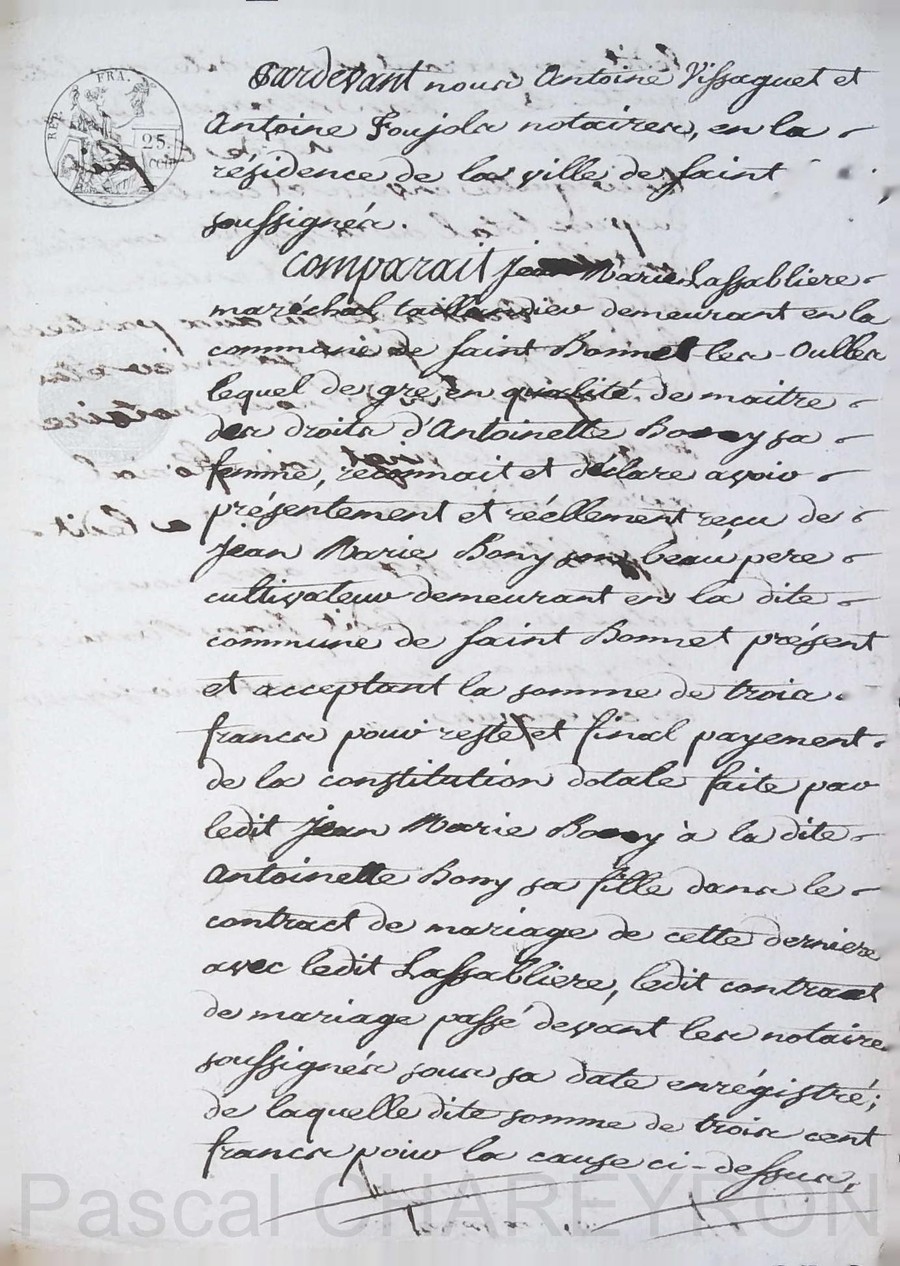 REP. FRA.
25.
CEN.
Pardevant nous Antoine Vissaguet et
Antoine Foujols notaires, en la
résidence de la ville de saint
soussignés.
Comparait Jean Marie Lassabliere
maréchal taillandier demeurant en la
commune de saint Bonnet les-Oulles
lequel de gré, en qualité de maitre
des droits d'Antoinette Bony sa
femme, reconnait et déclare avoir
présentement et réellement reçu de
Jean Marie Bony son beau pere
cultivateur demeurant en la dite
commune de saint Bonnet présent
et acceptant la somme de trois
francs pour reste et final payement
de la constitution dotale faite par
ledit Jean Marie Bony à la dite
Antoinette Bony sa fille dans le
contract de mariage de cette derniere
avec ledit Lassabliere, ledit contract
de mariage passé devant les notaires
soussignés sous sa date enrégistré;
de laquelle dite somme de trois cent
francs pour la cause ci-dessus,
Pascal CHAREYRON